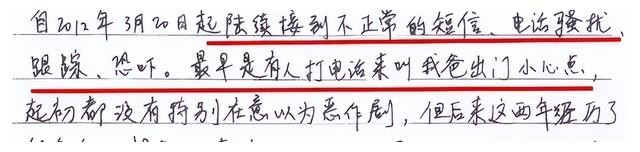 自2012年3月20日起陆续接到不正常的短信、电话骚扰、
跟踪、恐吓。最早是有人打电话来叫我爸出门小心点,
起初都没有特别在意以为恶作剧,但后来这两年经历了